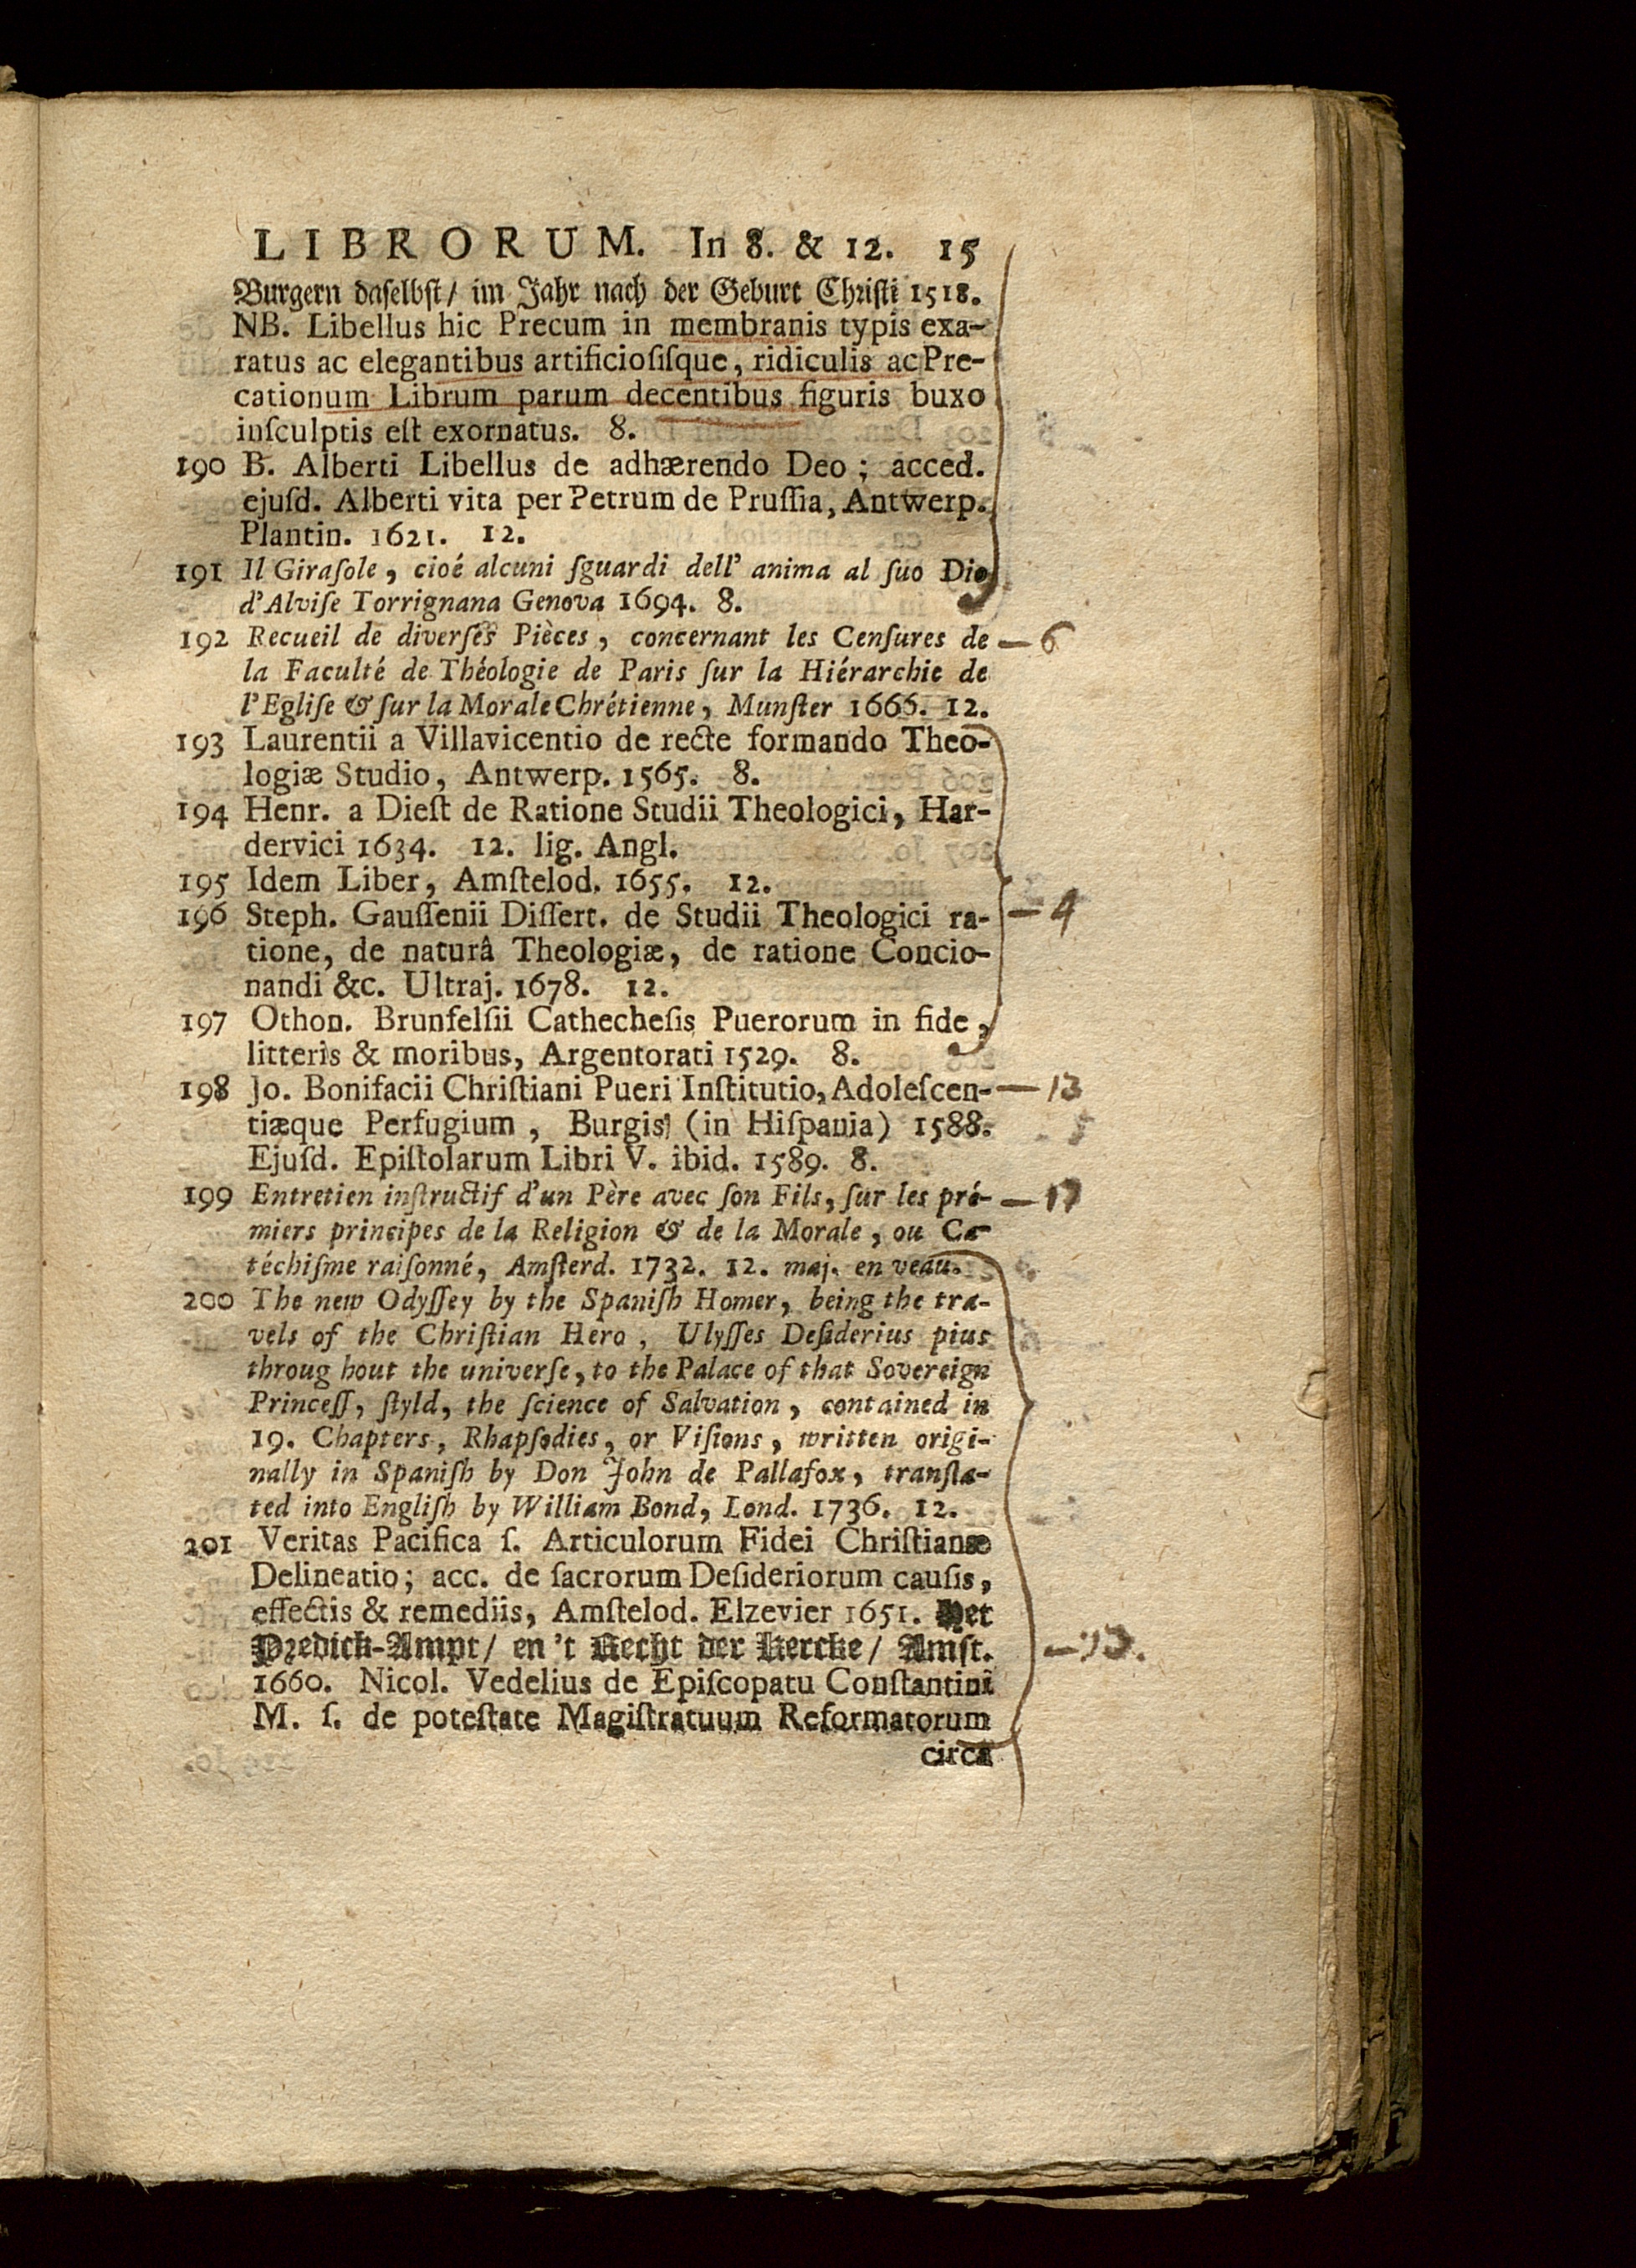 LIBRORUM. In 8. & 12. 15
Burgern daselbst/ im Jahr nach der Geburt Christi 1518.
NB. Libellus hic Precum in membranis typis exa-
ratus ac elegantibus artificiosiſque, ridiculis ac Pre-
cationum Librum parum decentibus figuris buxo
inſculptis eſt exornatus. 8.
190 B. Alberti Libellus de adhærendo Deo; acced.
ejuſd. Alberti vita per Petrum de Pruſſia, Antwerp.
Plantin. 1621. 12.
191 Il Giraſole, cioé alcuni ſguardi dell' anima al ſuo Dio
d'Alviſe Torrignana Genova 1694. 8.
192 Recueil de diverſes Pièces, concernant les Cenſures de — 6
la Faculté de Théologie de Paris ſur la Hiérarchie de
l'Egliſe & ſur la Morale Chrétienne, Munſter 1666. 12.
193 Laurentii a Villavicentio de recte formando Theo-
logiæ Studio, Antwerp. 1565. 8.
194 Henr. a Dieſt de Ratione Studii Theologici, Har-
dervici 1634. 12. lig. Angl.
195 Idem Liber, Amſtelod. 1655. 12.
196 Steph. Gauſſenii Diſſert. de Studii Theologici ra- — 4
tione, de naturâ Theologiæ, de ratione Concio-
nandi &c. Ultraj. 1678. 12.
197 Othon. Brunfelſii Cathecheſis Puerorum in fide,
litteris & moribus, Argentorati 1529. 8.
198 Jo. Bonifacii Chriſtiani Pueri Inſtitutio, Adoleſcen- — 13
tiæque Perfugium, Burgis (in Hiſpania) 1588.
Ejuſd. Epiſtolarum Libri V. ibid. 1589. 8.
199 Entretien inſtructif d'un Père avec ſon Fils, ſur les pré- — 17
miers principes de la Religion & de la Morale, ou Ca-
téchiſme raiſonné, Amſterd. 1732. 12. maj. en veau.
200 The new Odyſſey by the Spaniſh Homer, being the tra-
vels of the Chriſtian Hero, Ulyſſes Deſiderius pius
throug hout the univerſe, to the Palace of that Sovereign
Princeſſ, ſtyld, the ſcience of Salvation, contained in
19. Chapters, Rhapſodies, or Viſions, written origi-
nally in Spaniſh by Don John de Pallafox, tranſla-
ted into Engliſh by William Bond, Lond. 1736. 12.
201 Veritas Pacifica ſ. Articulorum Fidei Chriſtianæ
Delineatio; acc. de ſacrorum Deſideriorum cauſis,
effectis & remediis, Amſtelod. Elzevier 1651. Het
Predick-Ampt/ en 't Recht der Kercke/ Amſt.
1660. Nicol. Vedelius de Epiſcopatu Conſtantini
M. ſ. de poteſtate Magiſtratuum Reformatorum
circa